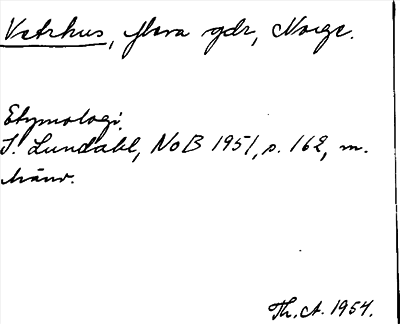 Vetrhus, flera gdr, Norge.
Etymologi.
I. Lundahl, NoB 1951, s. 162, m.
hänv.
Th. A. 1954.